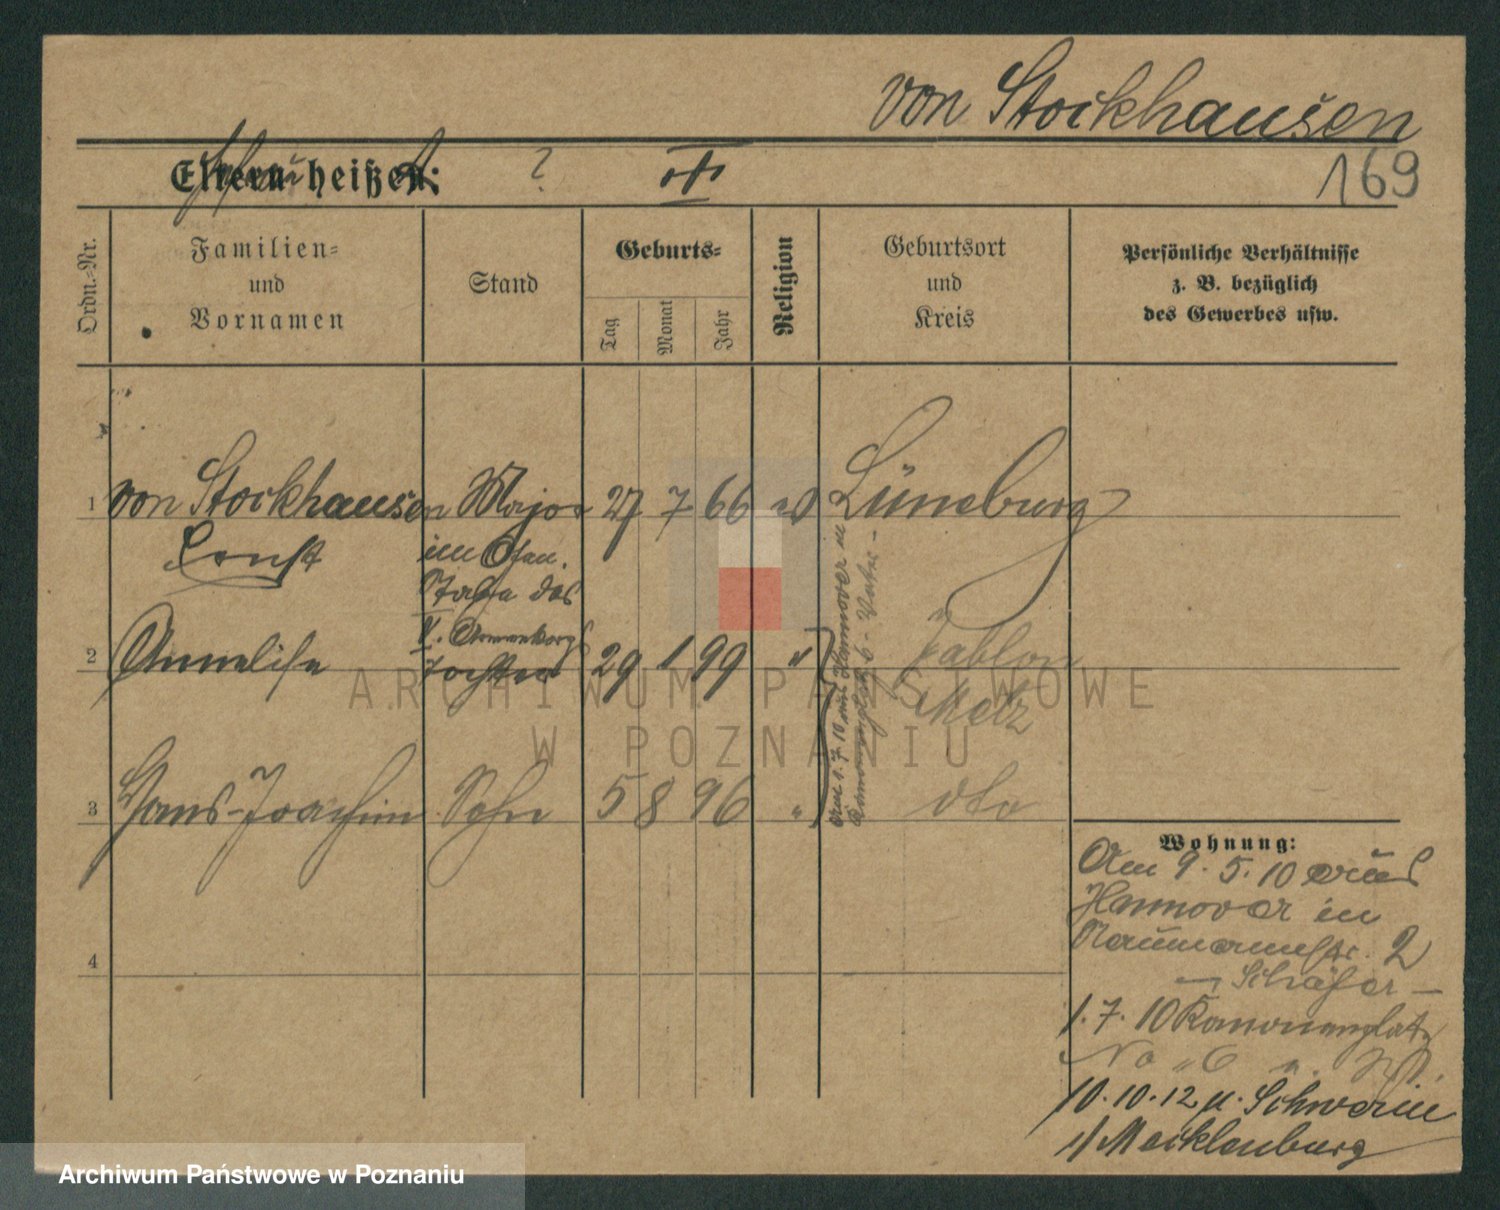 von Stockhausen
169
Eltern heißen:
?
Ordn.-Nr.
Familien-
und
Vornamen
Stand
Geburts-
Tag
Monat
Jahr
Religion
Geburtsort
und
Kreis
Persönliche Verhältnisse
z. B. bezüglich
des Gewerbes usw.
1 von Stockhausen Major 27 7 66 Lüneburg
Ernst
im Gen.
Stabe des
V. Armeekorps
2 Annelise Tochter 29 1 99 " Jablon
Metz
3 Hans-Joachim Sohn 5 8 96 " dto
Am 1.7.10 aus Hannover in
Kanonenplatz 6 - Vater -
4
Wohnung:
Am 9.5.10 aus
Hannover in
Naumannstr. 2
- Schäfer -
1.7.10 Kanonenplatz
No 6
10.10.12 n. Schwerin
i/ Mecklenburg
ARCHIWUM PAŃSTWOWE
W POZNANIU
Archiwum Państwowe w Poznaniu